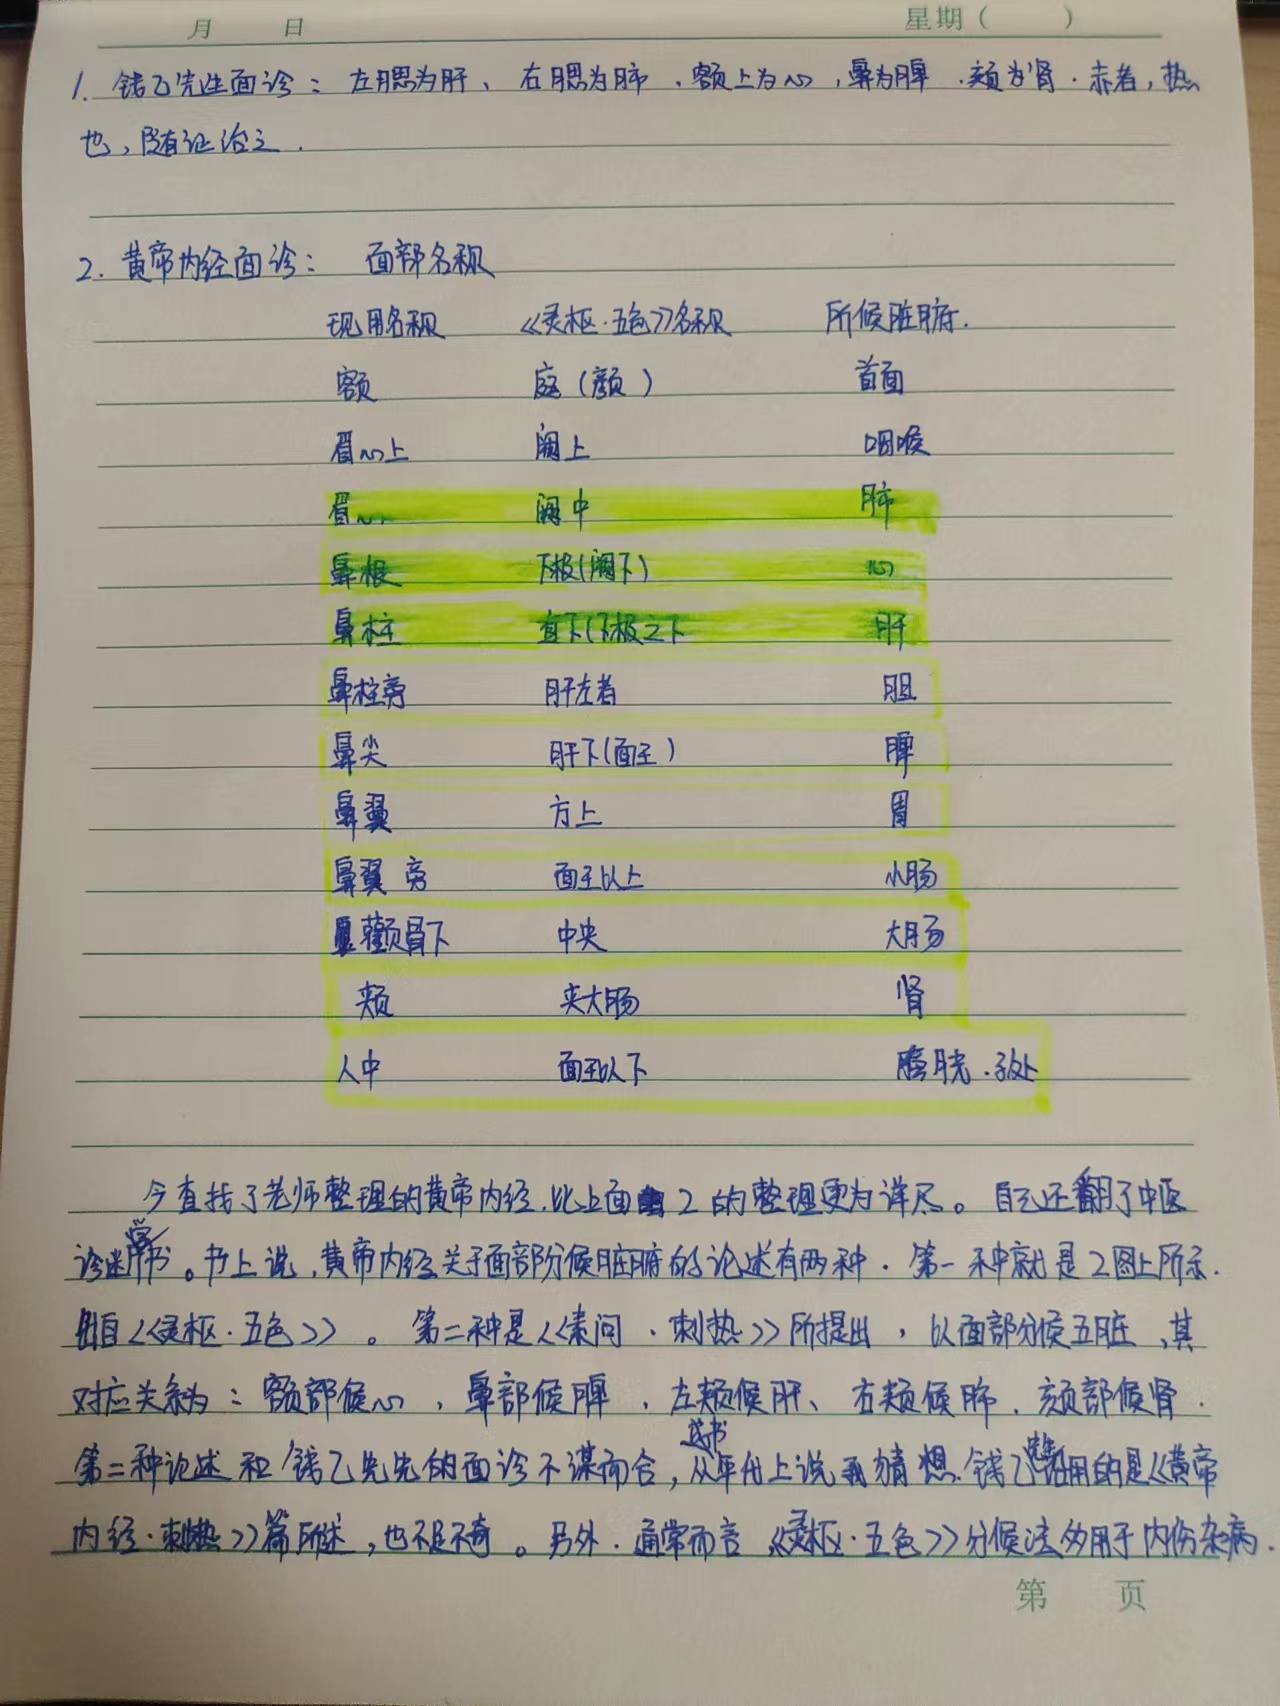 月 日 星期( )
1. 钱乙先生面诊：左腮为肝、右腮为肺、额上为心，鼻为脾、颏为肾.赤者，热
也，随证治之.
2. 黄帝内经面诊： 面部名称
现用名称 《灵枢·五色》名称 所候脏腑.
额 庭(颜) 首面
眉心上 阙上 咽喉
眉心 阙中 肺
鼻根 下极(阙下) 心
鼻柱 直下(下极之下 肝
鼻柱旁 肝左者 胆
鼻尖 肝下(面王) 脾
鼻翼 方上 胃
鼻翼旁 面王以上 小肠
颧骨下 中央 大肠
颊 夹大肠 肾
人中 面王以下 膀胱.子处
今查找了老师整理的黄帝内经.比上面2的整理更为详尽。自己还翻了中医
诊断学书。书上说，黄帝内经关于面部分候脏腑的论述有两种.第一种就是2图上所示.
出自《灵枢·五色》。第二种是《素问·刺热》所提出，以面部分候五脏，其
对应关系为：额部候心，鼻部候脾，左颊候肝、右颊候肺.颏部候肾.
第二种论述和钱乙先先的面诊不谋而合，从成书年代上说我猜想.钱乙沿用的是《黄帝
内经·刺热》篇所述，也不足不奇。另外.通常而言《灵枢·五色》分候法多用于内伤杂病.
第 页